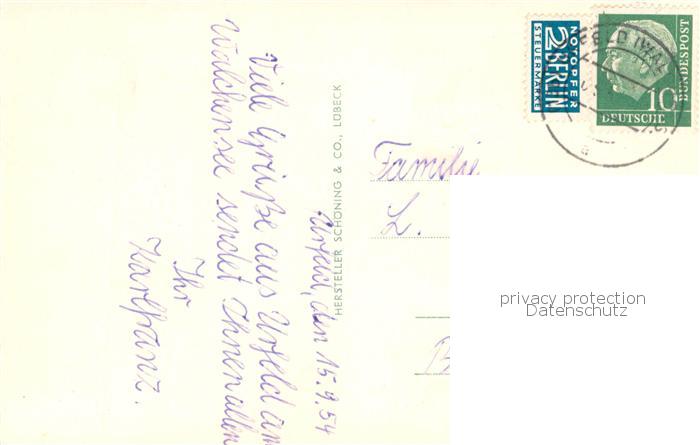 Urfeld, den 15.9.54
Viele Grüße aus Urfeld am
Walchensee sendet Ihnen allen
Ihr
Karlfranz.
HERSTELLER SCHÖNING & CO., LÜBECK
NOTOPFER
2 BERLIN
STEUERMARKE
DEUTSCHE
BUNDESPOST
10
Familie
L.
B
privacy protection
Datenschutz